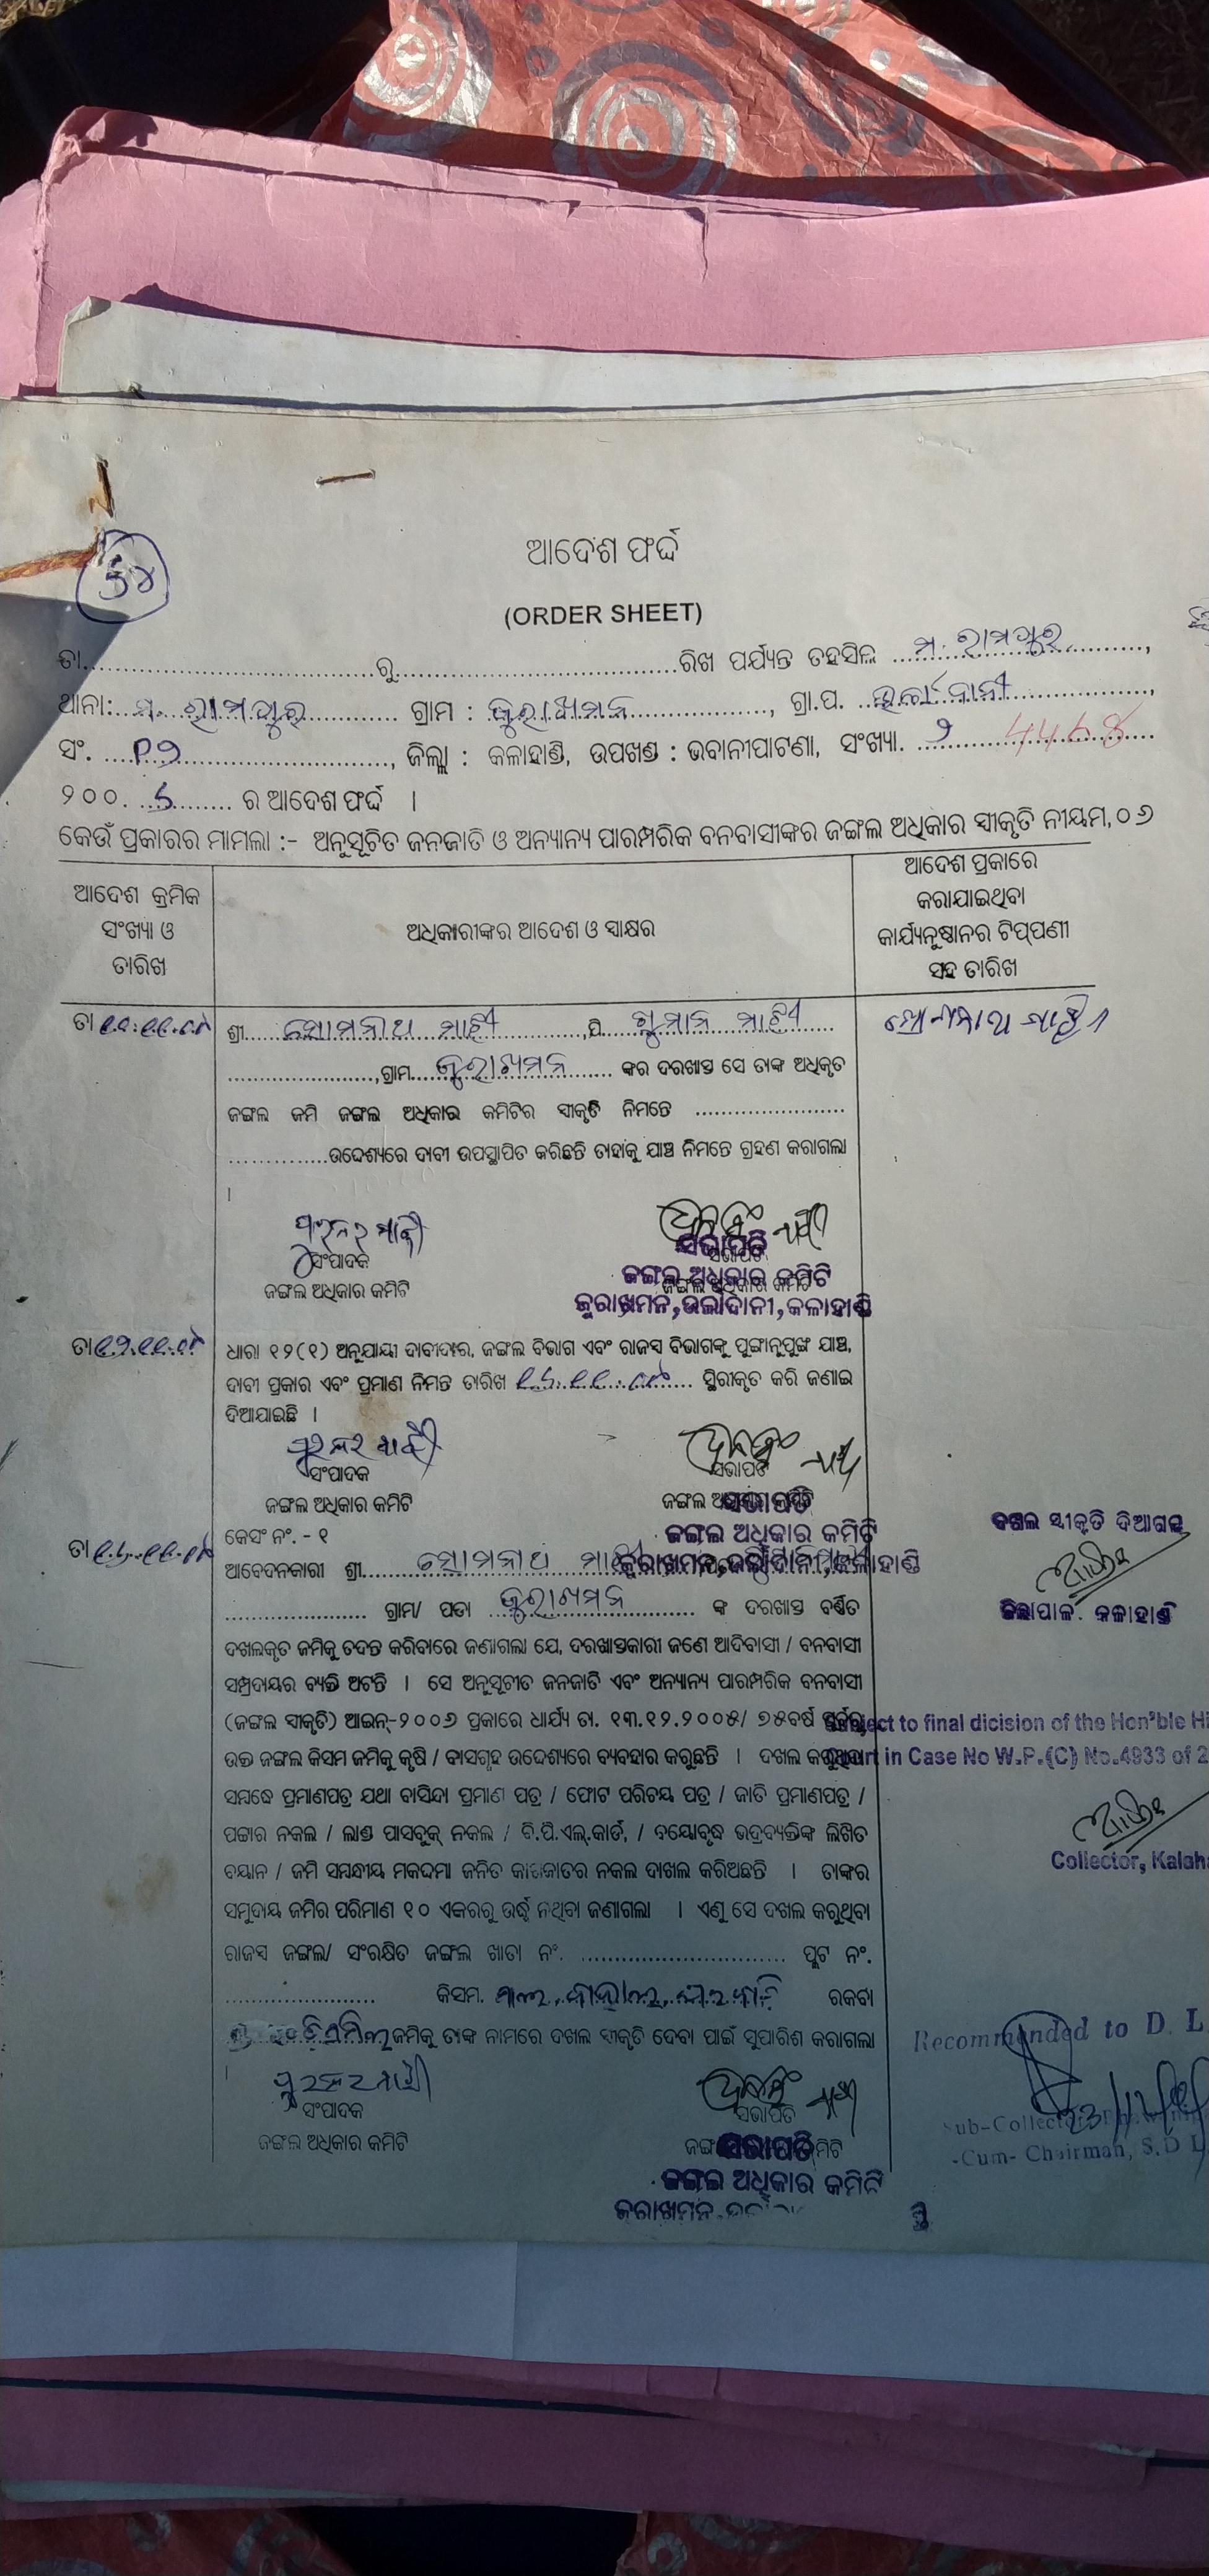 ଆଦେଶ ଫର୍ଦ୍ଦ
(ORDER SHEET)
ତା..............ରୁ..............ରିଖ ପର୍ଯ୍ୟନ୍ତ ତହସିଲ ମ. ରାମପୁର,
ଥାନା: ମ. ରାମପୁର ଗ୍ରାମ : ଜୁରାଖମନ, ଗ୍ରା.ପ.
ସଂ. , ଜିଲ୍ଲା : କଳାହାଣ୍ଡି, ଉପଖଣ୍ଡ : ଭବାନୀପାଟଣା, ସଂଖ୍ୟା.
୨୦୦. ର ଆଦେଶ ଫର୍ଦ୍ଦ ।
କେଉଁ ପ୍ରକାରର ମାମଲା :- ଅନୁସୂଚିତ ଜନଜାତି ଓ ଅନ୍ୟାନ୍ୟ ପାରମ୍ପରିକ ବନବାସୀଙ୍କର ଜଙ୍ଗଲ ଅଧିକାର ସ୍ୱୀକୃତି ନୀୟମ,୦୬
ଆଦେଶ କ୍ରମିକ
ସଂଖ୍ୟା ଓ
ତାରିଖ
ଅଧିକାରୀଙ୍କର ଆଦେଶ ଓ ସ୍ୱାକ୍ଷର
ଆଦେଶ ପ୍ରକାରେ
କରାଯାଇଥିବା
କାର୍ଯ୍ୟନୁଷ୍ଠାନର ଟିପ୍ପଣୀ
ସହ ତାରିଖ
ତା
ଶ୍ରୀ ସୋମନାଥ ମାଝୀ ,ପି ମାଝୀ
,ଗ୍ରାମ ଜୁରାଖମନ ଙ୍କର ଦରଖାସ୍ତ ସେ ତାଙ୍କ ଅଧିକୃତ
ଜଙ୍ଗଲ ଜମି ଜଙ୍ଗଲ ଅଧିକାର କମିଟିର ସ୍ୱୀକୃତି ନିମନ୍ତେ
ଉଦ୍ଦେଶ୍ୟରେ ଦାବୀ ଉପସ୍ଥାପିତ କରିଛନ୍ତି ତାହାକୁ ଯାଞ୍ଚ ନିମନ୍ତେ ଗ୍ରହଣ କରାଗଲା
।
ସଂପାଦକ
ଜଙ୍ଗଲ ଅଧିକାର କମିଟି
ସଭାପତି
ଜଙ୍ଗଲ ଅଧିକାର କମିଟି
ଜୁରାଖମନ, କଳାହାଣ୍ଡି
ତା
ଧାରା ୧୨(୧) ଅନୁଯାୟୀ ଦାବୀଦାର, ଜଙ୍ଗଲ ବିଭାଗ ଏବଂ ରାଜସ ବିଭାଗଙ୍କୁ ପୁଙ୍ଖାନୁପୁଙ୍ଖ ଯାଞ୍ଚ,
ଦାବୀ ପ୍ରକାର ଏବଂ ପ୍ରମାଣ ନିମନ୍ତ ତାରିଖ ସ୍ଥିରୀକୃତ କରି ଜଣାଇ
ଦିଆଯାଇଛି ।
ସଂପାଦକ
ଜଙ୍ଗଲ ଅଧିକାର କମିଟି
ସଭାପତି
ଜଙ୍ଗଲ ଅଧିକାର କମିଟି
ତା
କେସଂ ନଂ. - ୧
ଆବେଦନକାରୀ ଶ୍ରୀ ସୋମନାଥ ମାଝୀ
ଗ୍ରାମ/ ପଡା ଜୁରାଖମନ ଙ୍କ ଦରଖାସ୍ତ ବର୍ଣ୍ଣିତ
ଦଖଲକୃତ ଜମିକୁ ତଦନ୍ତ କରିବାରେ ଜଣାଗଲା ଯେ, ଦରଖାସ୍ତକାରୀ ଜଣେ ଆଦିବାସୀ / ବନବାସୀ
ସମ୍ପ୍ରଦାୟର ବ୍ୟକ୍ତି ଅଟନ୍ତି । ସେ ଅନୁସୂଚୀତ ଜନଜାତି ଏବଂ ଅନ୍ୟାନ୍ୟ ପାରମ୍ପରିକ ବନବାସୀ
(ଜଙ୍ଗଲ ସ୍ୱୀକୃତି) ଆଇନ୍-୨୦୦୬ ପ୍ରକାରେ ଧାର୍ଯ୍ୟ ତା. ୧୩.୧୨.୨୦୦୫/ ୭୫ବର୍ଷ
ଉକ୍ତ ଜଙ୍ଗଲ କିସମ ଜମିକୁ କୃଷି / ବାସଗୃହ ଉଦ୍ଦେଶ୍ୟରେ ବ୍ୟବହାର କରୁଛନ୍ତି । ଦଖଲ କରୁଥିବା
ସମ୍ବନ୍ଧେ ପ୍ରମାଣପତ୍ର ଯଥା ବାସିନ୍ଦା ପ୍ରମାଣ ପତ୍ର / ଫୋଟ ପରିଚୟ ପତ୍ର / ଜାତି ପ୍ରମାଣପତ୍ର /
ପଟ୍ଟାର ନକଲ / ଲାଣ୍ଡ ପାସବୁକ୍ ନକଲ / ବି.ପି.ଏଲ୍.କାର୍ଡ, / ବୟୋବୃଦ୍ଧ ଭଦ୍ରବ୍ୟକ୍ତିଙ୍କ ଲିଖିତ
ବୟାନ / ଜମି ସମ୍ବନ୍ଧୀୟ ମକଦ୍ଦମା ଜନିତ କାଗଜାତର ନକଲ ଦାଖଲ କରିଅଛନ୍ତି । ତାଙ୍କର
ସମୁଦାୟ ଜମିର ପରିମାଣ ୧୦ ଏକରରୁ ଉର୍ଦ୍ଧ୍ୱ ନଥିବା ଜଣାଗଲା । ଏଣୁ ସେ ଦଖଲ କରୁଥିବା
ରାଜସ ଜଙ୍ଗଲ/ ସଂରକ୍ଷିତ ଜଙ୍ଗଲ ଖାତା ନଂ. ପ୍ଲଟ ନଂ.
କିସମ. ରକବା
ଜମିକୁ ତାଙ୍କ ନାମରେ ଦଖଲ ସ୍ୱୀକୃତି ଦେବା ପାଇଁ ସୁପାରିଶ କରାଗଲା
।
ସଂପାଦକ
ଜଙ୍ଗଲ ଅଧିକାର କମିଟି
ସଭାପତି
ଜଙ୍ଗଲ ଅଧିକାର କମିଟି
ଦଖଲ ସ୍ୱୀକୃତି ଦିଆଗଲା
ଜିଲ୍ଲାପାଳ. କଳାହାଣ୍ଡି
Subject to final dicision of the Hon'ble
Court in Case No W.P.(C) No.4933 of
Collector,
Recommended to D. L
Sub-Collector
-Cum- Chairman, S.D L